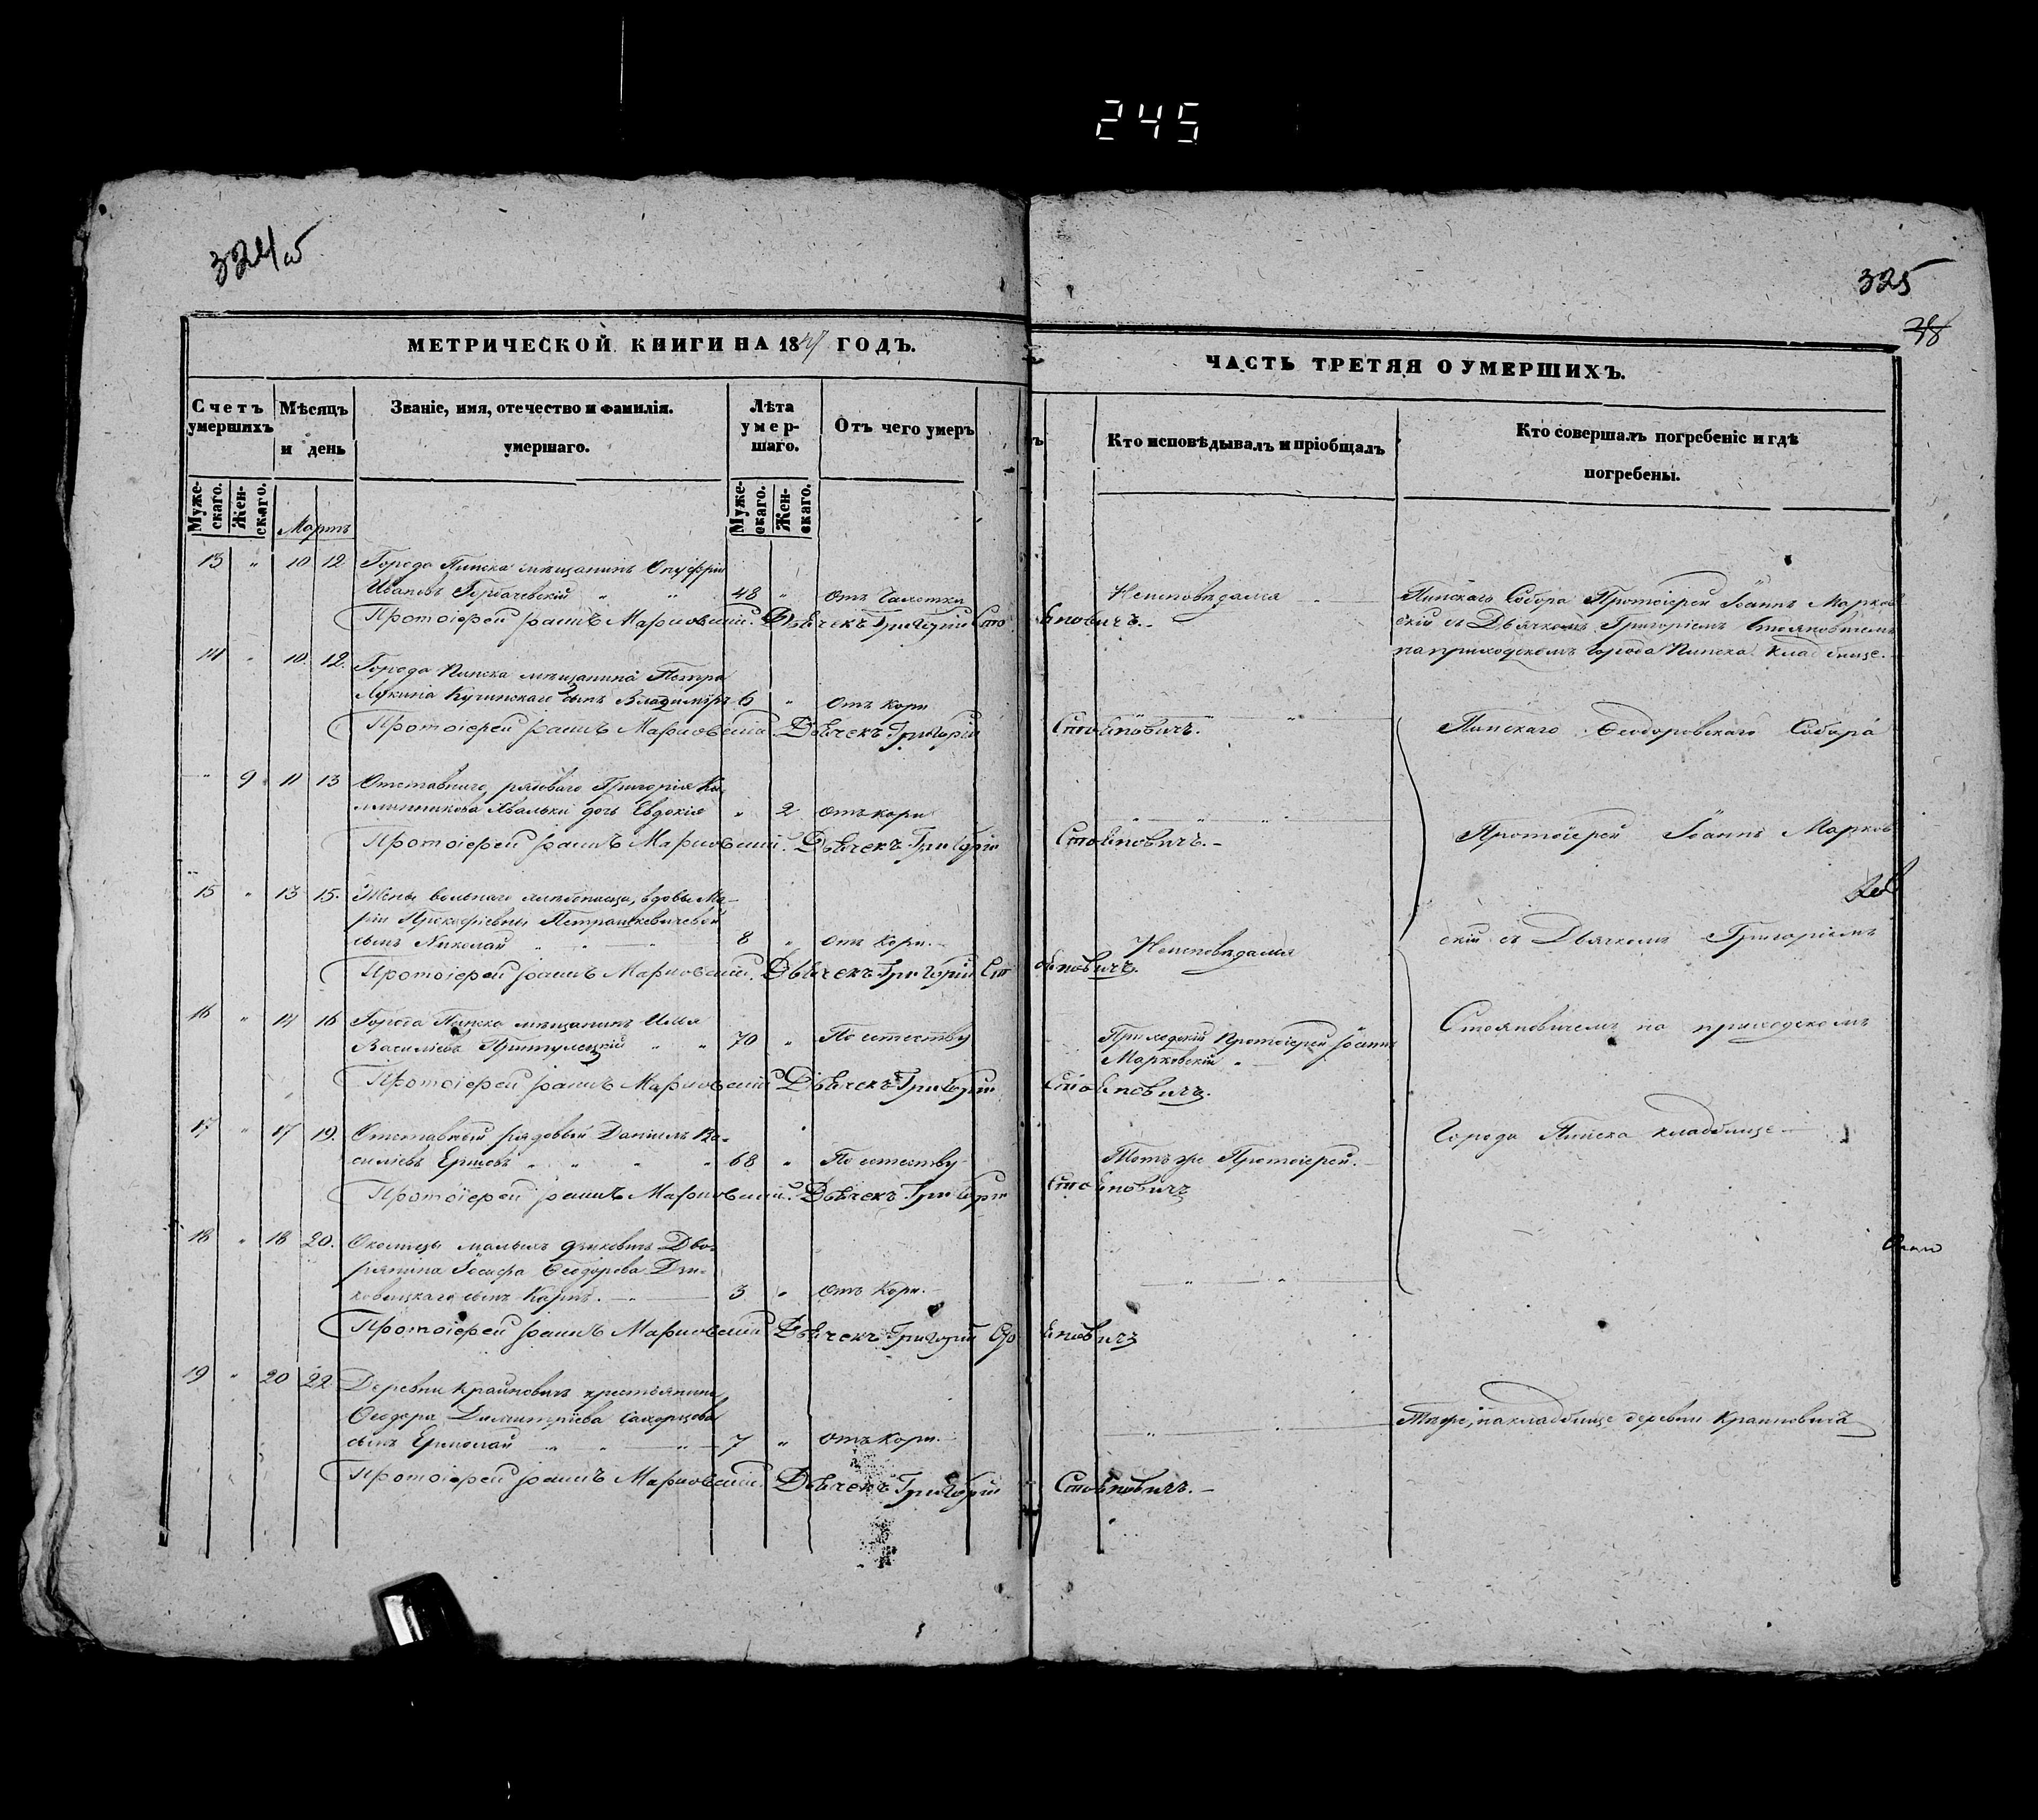 245
324 об
325
38
МЕТРИЧЕСКОЙ КНИГИ НА 1847 ГОДЪ.
ЧАСТЬ ТРЕТЯЯ О УМЕРШИХЪ.
Счетъ умершихъ
Мѣсяцъ и день
Званіе, имя, отечество и фамилія.
умершаго.
Лѣта умер-шаго.
Отъ чего умеръ
Кто исповѣдывалъ и пріобщалъ
Кто совершалъ погребеніе и гдѣ
погребены.
Муже-скаго.
Жен-скаго.
Мартъ
Муже-скаго.
Жен-скаго.
13 " 10 12 Города Пинска мѣщанинъ Онуфрій
Ивановъ Горбачевскій " " 48 " Отъ Чахотки
Неисповѣдался
Пинскаго Собора Протоіерей Іоаннъ Марков
скій съ Дьячкомъ Григоріемъ Стояновичемъ
на приходскомъ города Пинска кладбище.
Протоіерей Іоаннъ Марковскій. Дьячекъ Григорій Стояновичъ.
14 " 10 12. Города Пинска мѣщанина Петра
Лукина Кучинскаго сынъ Владиміръ 6 " Отъ кори
Протоіерей Іоаннъ Марковскій. Дьячекъ Григорій Стояновичъ.
Пинскаго Ѳеодоровскаго Собора
" 9 11 13 Отставнаго рядоваго Григорія Ка-
дочь Евдокія " 2 отъ кори
Протоіерей Іоаннъ Марковскій. Дьячекъ Григорій Стояновичъ.
Протоіерей Іоаннъ Марков
15 " 13 15. Жены вольнаго хлѣбопашца, вдовы Ма-
ріи Прокофіевны Петрашкевичевой
сынъ Николай 8 " отъ кори.
Неисповѣдался
скій съ Дьячкомъ Григоріемъ
Протоіерей Іоаннъ Марковскій. Дьячекъ Григорій Стояновичъ.
16 " 14 16 Города Пинска мѣщанинъ Илія
Василіевъ Притулецкій " " 70 " По естеству
Приходскій Протоіерей Іоаннъ
Марковскій
Стояновичемъ на приходскомъ
Протоіерей Іоаннъ Марковскій Дьячекъ Григорій Стояновичъ.
17 " 17 19. Отставный рядовый Даніилъ Ва-
силіевъ Ершовъ " " " " 68 " По естеству
Тотъ же Протоіерей.
Города Пинска кладбище
Протоіерей Іоаннъ Марковскій. Дьячекъ Григорій Стояновичъ
18 " 18 20. Околицы малыхъ Дзиковичъ Дво-
рянина Іосифа Ѳеодорова Дзи-
ковицкаго сынъ Карпъ. 3 " отъ Кори.
Протоіерей Іоаннъ Марковскій Дьячекъ Григорій Стояновичъ
19 " 20 22 Деревни Крайновичъ крестьянина
Ѳеодора Димитріева
сынъ Ермолай 7 " отъ Кори.
Тѣже, на кладбище деревни Крайновичъ
Протоіерей Іоаннъ Марковскій. Дьячекъ Григорій Стояновичъ.